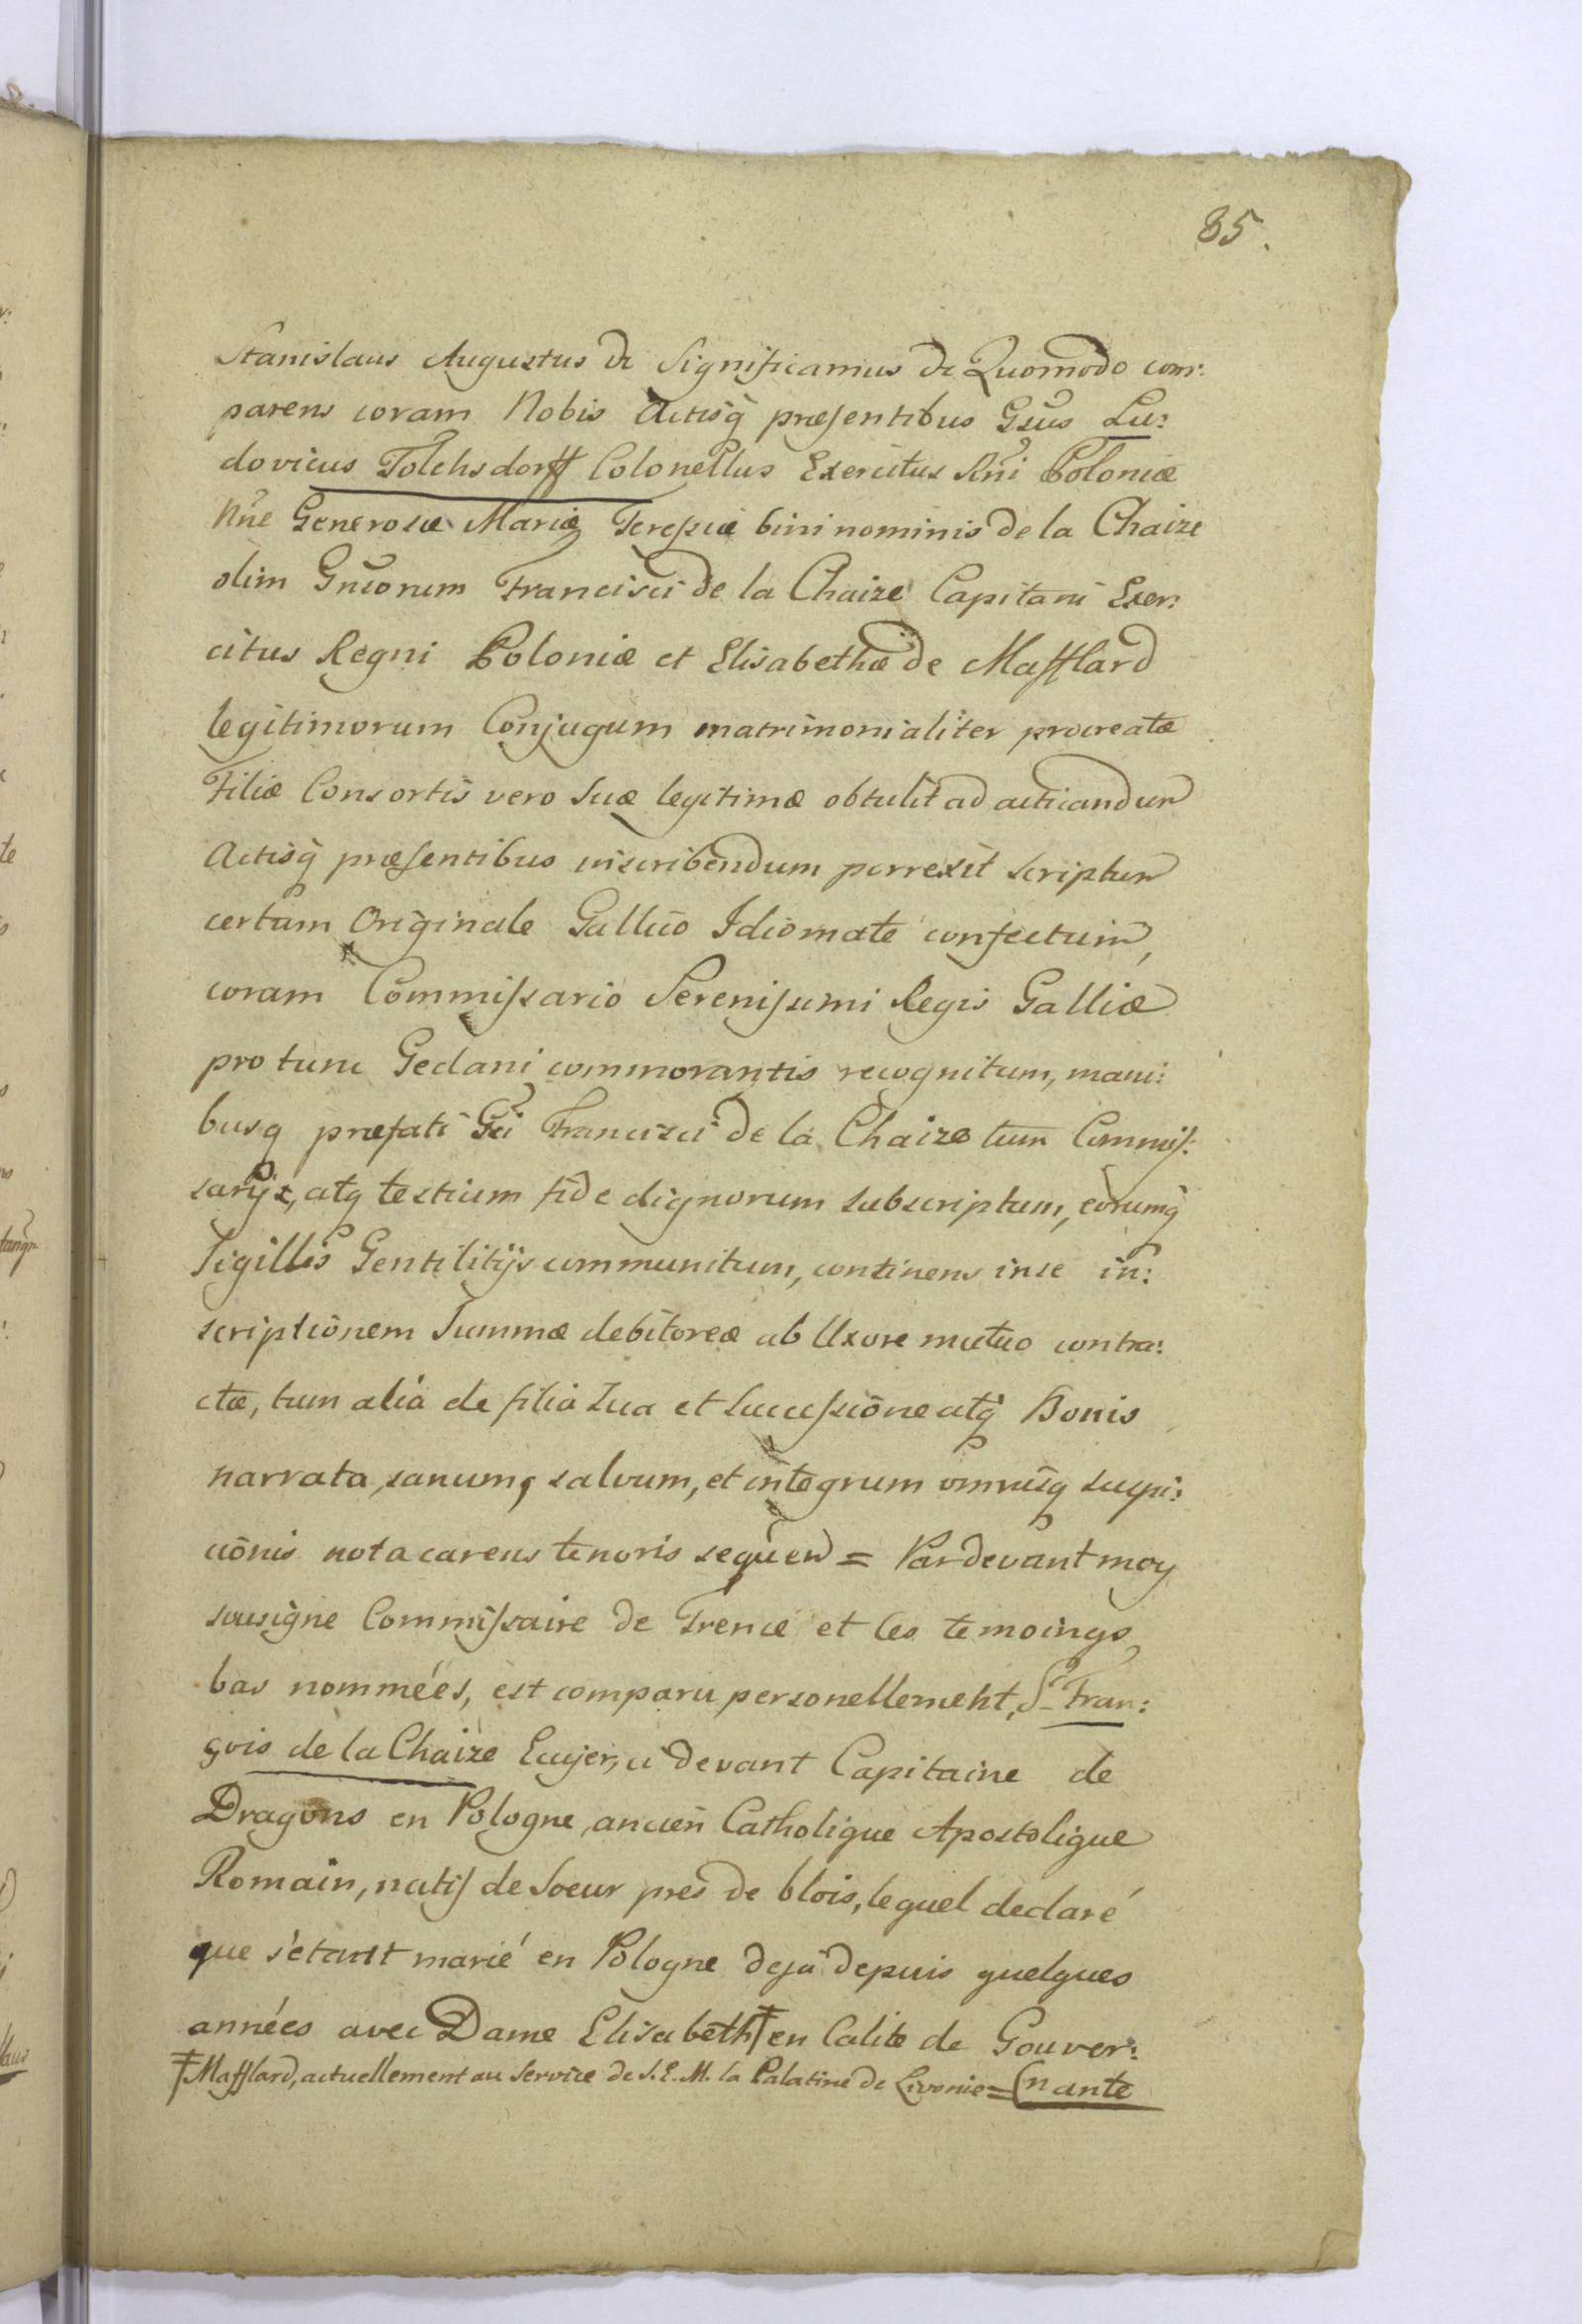 85.
Stanislaus Augustus &c Significamus &c Quomodo com:
parens coram Nobis Actisq̃ præsentibus Gsũs Lu:
dovicus Tolchsdorff Colonellus Exercitus Rñi Poloniæ
Nñe Generosæ Mariæ Teresiæ bini nominis de la Chaize
olim Gñsorum Francisci de la Chaize Capitani Exer:
citus Regni Poloniæ et Elisabethæ de Mafflard
legitimorum Conjugum matrimonialiter procreatæ
Filiæ Consortis vero Suæ legitimæ obtulit ad acticandum
Actisq̃ præsentibus inscribendum porrexit scriptum
certum Originale Gallico Idiomate confectum,
coram Commissario Serenissimi Regis Galliæ
pro tunc Gedani commorantis recognitum, mani:
busq præfati Gsĩ Francisci de la Chaize tum Commis:
sarijs, atq testium fide dignorum subscriptum, eorumq̃
Sigillis Gentilitijs communitum, continens in se in:
scriptionem Summæ debitoreæ ab Uxore mutuo contra:
ctæ, tum alia de filia sua et successione atq̃ Bonis
narrata, sanum, salvum, et integrum omnisq suspi:
cionis nota carens tenoris sequen = Pardevant moy
sousigne Commissaire de Frence et les temoings
bas nommées, est comparu personellement, Sr Fran:
çois de la Chaize Ecujer, ci devant Capitaine de
Dragons en Pologne, ancien Catholique Apostolique
Romain, natif de Soeur pres de blois, lequel declaré
que s'etant marié en Pologne deja depuis quelques
années avec Dame Elisabeth ‡ en Calite de Gouver:
‡ Mafflard, actuellement au Service de S. E. M. la Palatine de Livonie = nante